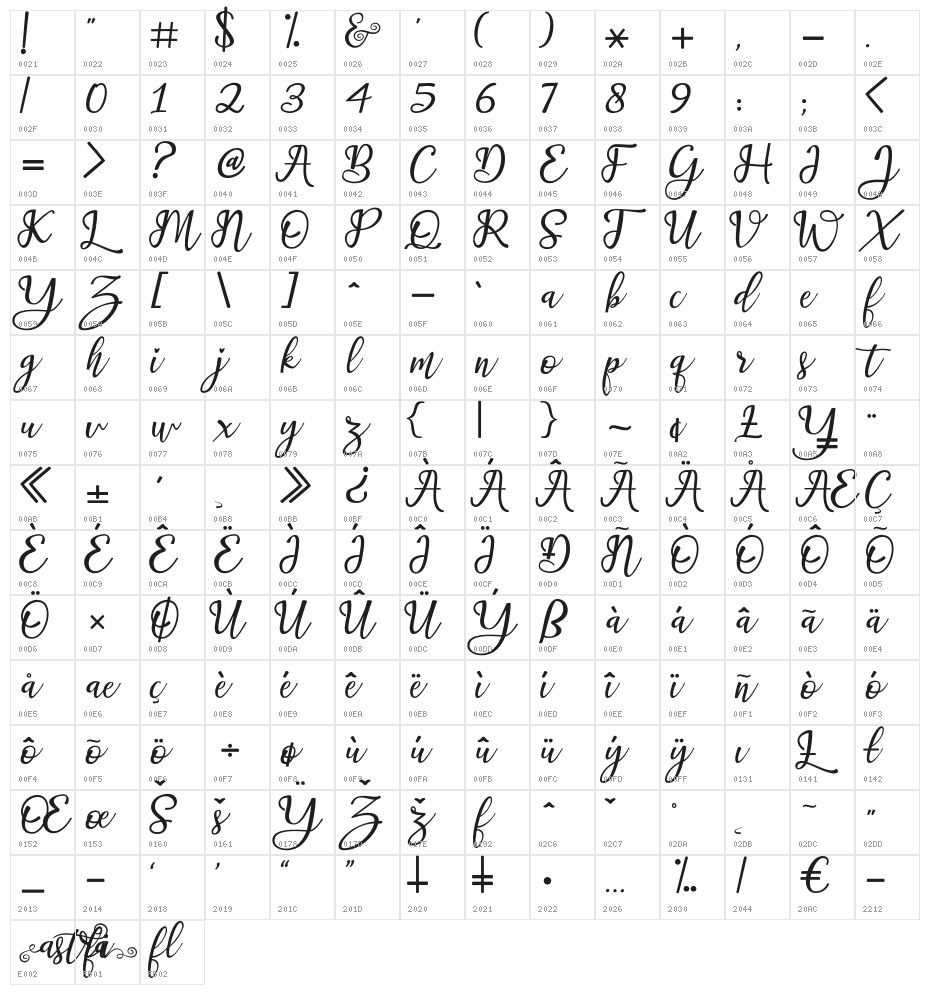 ! " # $ % & ' ( ) * + , - .
0021 0022 0023 0024 0025 0026 0027 0028 0029 002A 002B 002C 002D 002E
/ 0 1 2 3 4 5 6 7 8 9 : ; <
002F 0030 0031 0032 0033 0034 0035 0036 0037 0038 0039 003A 003B 003C
= > ? @ A B C D E F G H I J
003D 003E 003F 0040 0041 0042 0043 0044 0045 0046 0047 0048 0049 004A
K L M N O P Q R S T U V W X
004B 004C 004D 004E 004F 0050 0051 0052 0053 0054 0055 0056 0057 0058
Y Z [ \ ] ^ _ ` a b c d e f
0059 005A 005B 005C 005D 005E 005F 0060 0061 0062 0063 0064 0065 0066
g h i j k l m n o p q r s t
0067 0068 0069 006A 006B 006C 006D 006E 006F 0070 0071 0072 0073 0074
u v w x y z { | } ~ ¢ £ ¥ ¨
0075 0076 0077 0078 0079 007A 007B 007C 007D 007E 00A2 00A3 00A5 00A8
« ± ´ ¸ » ¿ À Á Â Ã Ä Å Æ Ç
00AB 00B1 00B4 00B8 00BB 00BF 00C0 00C1 00C2 00C3 00C4 00C5 00C6 00C7
È É Ê Ë Ì Í Î Ï Ð Ñ Ò Ó Ô Õ
00C8 00C9 00CA 00CB 00CC 00CD 00CE 00CF 00D0 00D1 00D2 00D3 00D4 00D5
Ö × Ø Ù Ú Û Ü Ý ß à á â ã ä
00D6 00D7 00D8 00D9 00DA 00DB 00DC 00DD 00DF 00E0 00E1 00E2 00E3 00E4
å æ ç è é ê ë ì í î ï ñ ò ó
00E5 00E6 00E7 00E8 00E9 00EA 00EB 00EC 00ED 00EE 00EF 00F1 00F2 00F3
ô õ ö ÷ ø ù ú û ü ý ÿ ı Ł ł
00F4 00F5 00F6 00F7 00F8 00F9 00FA 00FB 00FC 00FD 00FF 0131 0141 0142
Œ œ Š š Ÿ Ž ž ƒ ˆ ˇ ˚ ˛ ˜ ˝
0152 0153 0160 0161 0178 017D 017E 0192 02C6 02C7 02DA 02DB 02DC 02DD
– — ‘ ’ “ ” † ‡ • … ‰ ⁄ € −
2013 2014 2018 2019 201C 201D 2020 2021 2022 2026 2030 2044 20AC 2212
fl
E002 FB01 FB02